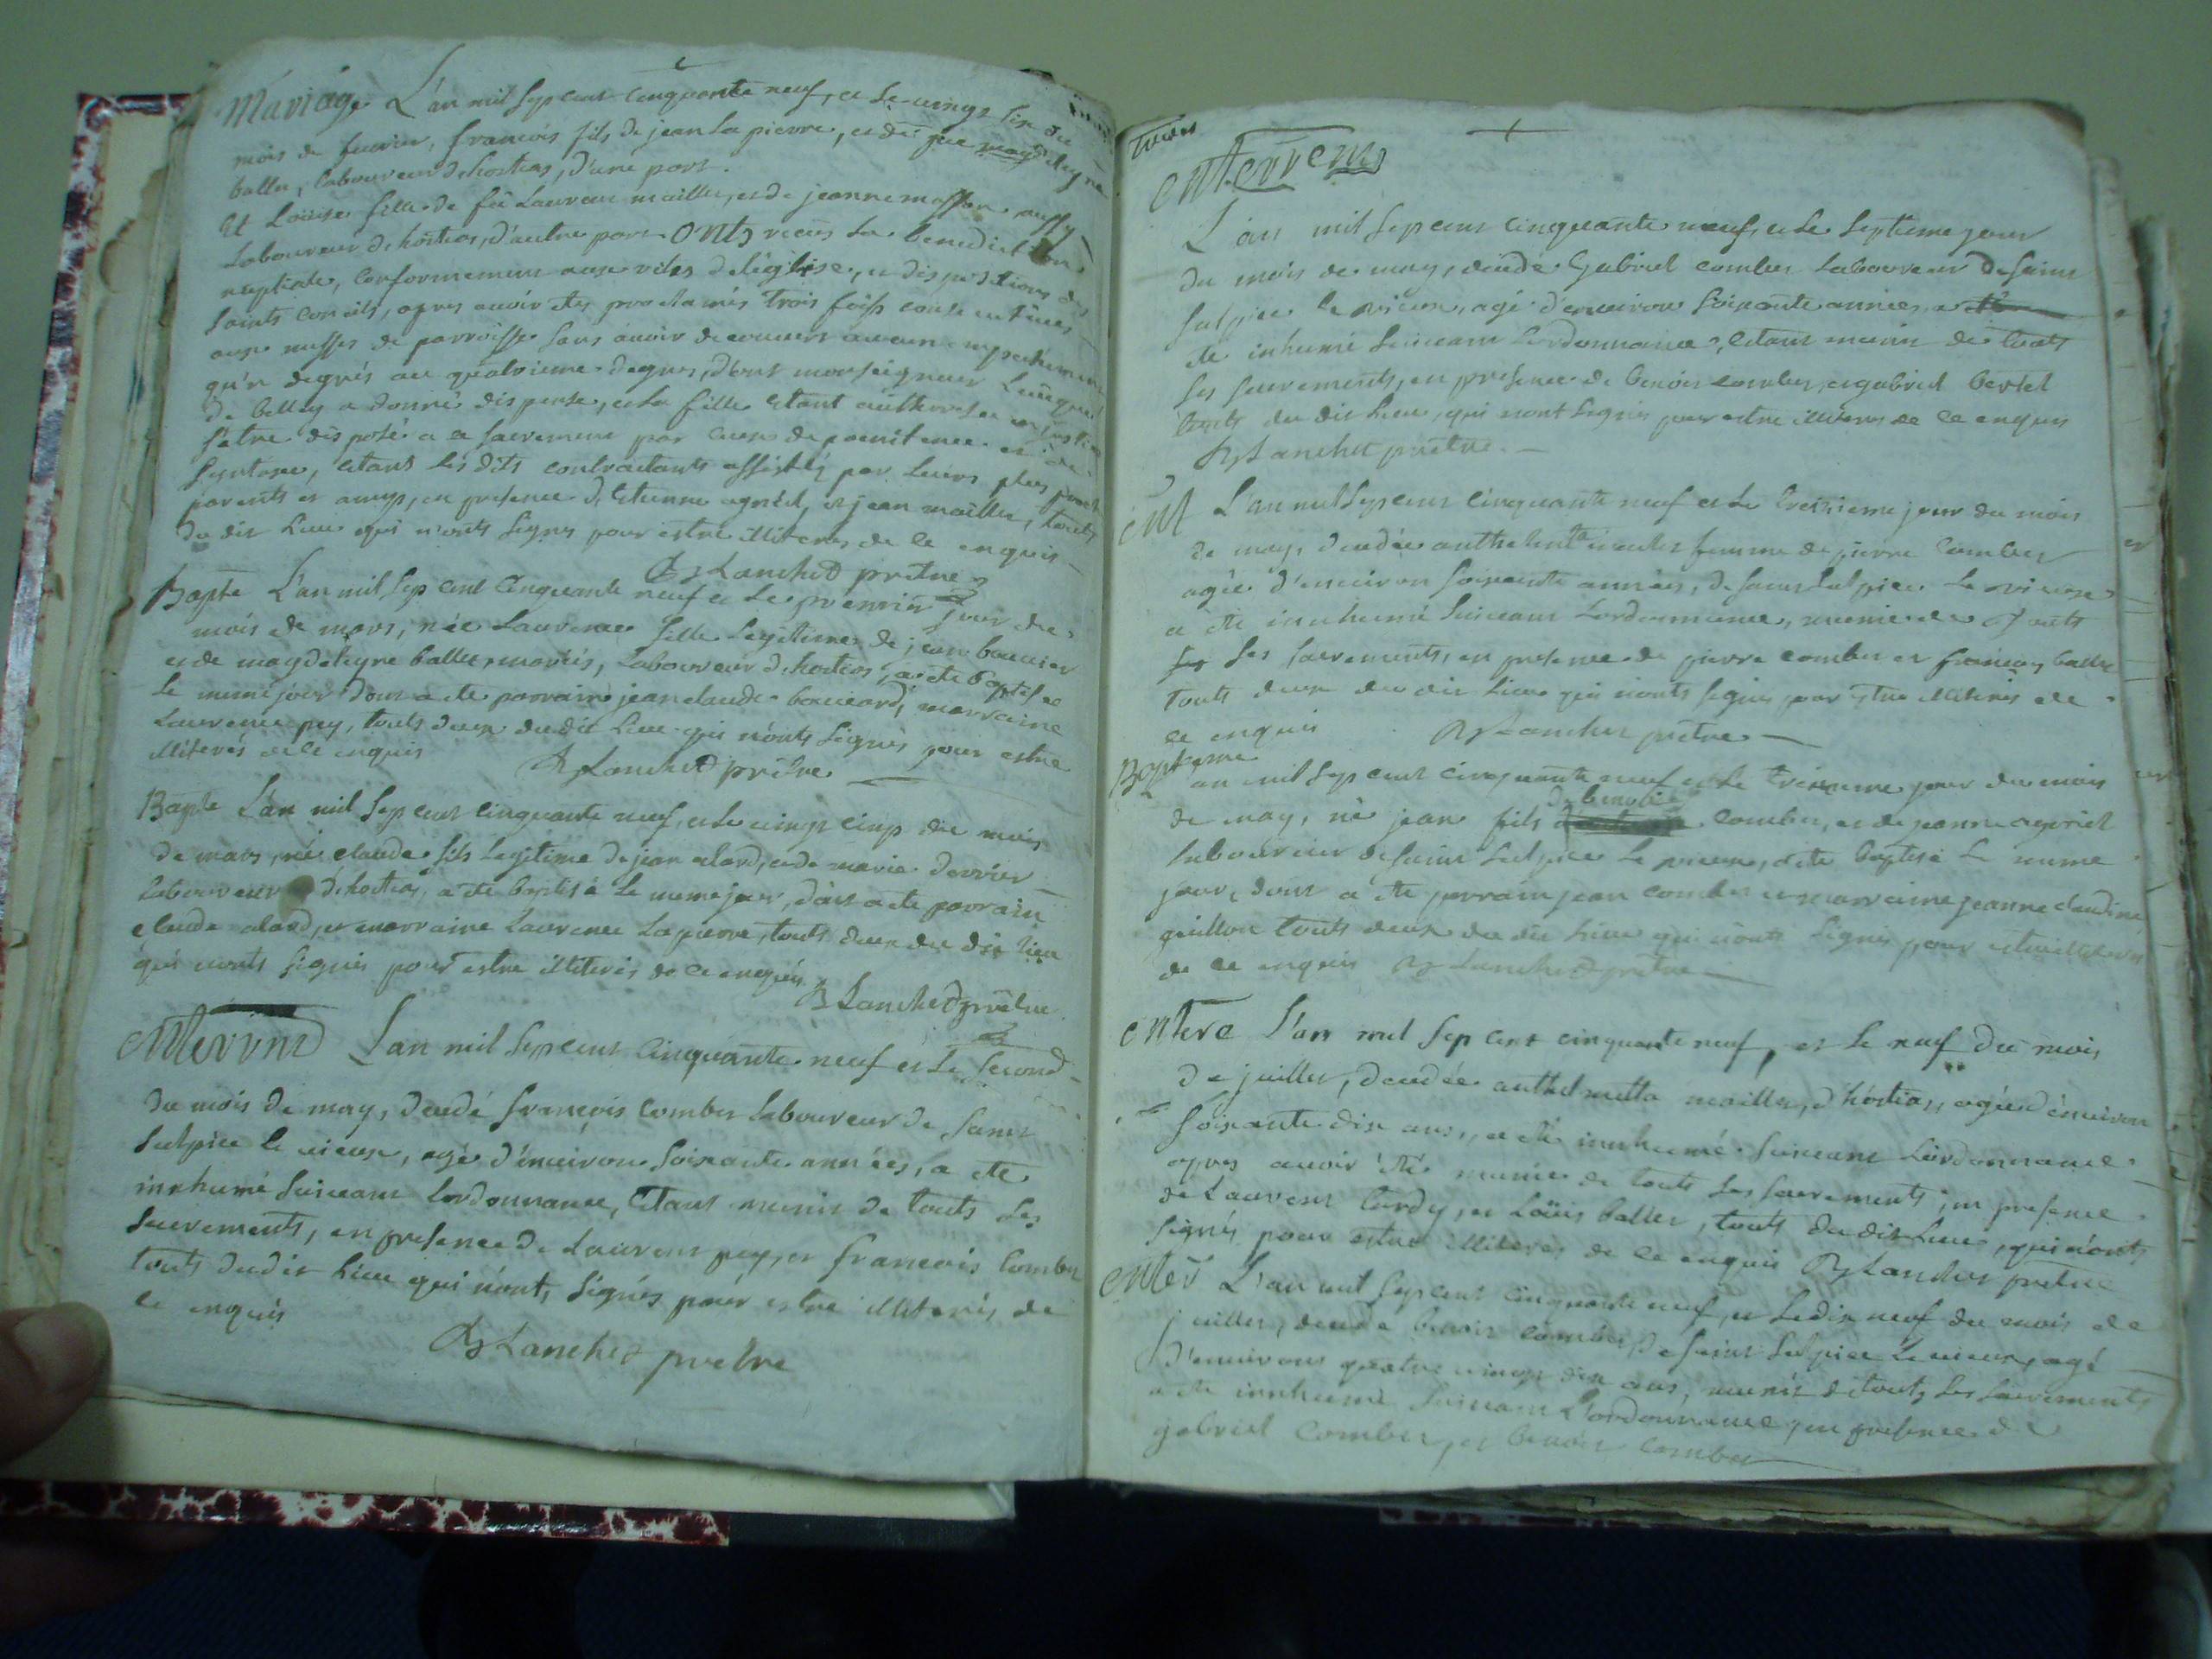 Mariage L'an mil sept cent cinquante neuf, et le vingt six du
mois de fevrier, francois fils de jean la pierre, et de feüe magdeleyne
ballet, laboureur d'hostias, d'une part.
Et Loüise fille de fû Laurent maillet, et de jeanne masson aussy
Laboureur d'hostias, d'autre part onts recus la benediction
nuptiale, conformement aux rites de l'église, et dispositions des
saints conciles, apres avoir étés proclamés trois fois consecutives
aux messes de parroisse sans avoir decouvert aucun empechement
qu'n degrés au quatrieme degres, dont monseigneur L'evêque
de belley a donné dispense, et la fille étant
s'étre disposé a ce sacrement par ceux de penitence et de
, êtants les dits contractants assistés par leurs plus proches
parents et amys, en presence d'Etienne agniel, et jean maillet, touts
du dit Lieu qui n'onts signes pour estre illiteres de ce enquis
Lanchet prêtre
Bapte L'an mil sept cent cinquante neuf et le premier jour du
mois de mars, née Laurence fille legitime de jean
et de magdeleyne ballet mariés, Laboureur d'hostias, a été baptisee
le meme jour dont a été parrain jean claude marraine
Laurence pey, touts deux du dit Lieu qui n'onts signés pour estre
illiterés de ce enquis Lanchet prêtre
Bapte L'an mil sept cent cinquante neuf, et le vingt cinq du mois
de mars, né claude fils legitime de jean alard, et de marie derrier
laboureur d'hostias, a été baptisé le meme jour, dont a été parrain
claude alard, et marraine Laurence Lapierre, touts deux du dit lieu
qui n'onts signés pour estre illiterés de ce enquis
Lanchet prêtre
enterrmt L'an mil sept cent cinquante neuf et le second
du mois de may, decedé françois Combet Laboureur de Saint
Sulpice le vieux, agé d'environ soixante années, a été
innhumé suivant L'ordonnance, êtant munis de touts Les
sacrements, en presence de Laurent pey, et francois Combet
touts du dit Lieu qui n'ont, signés pour estre illiterés de
ce enquis
Lanchet prêtre
enterremt
L'an mil sept cent cinquante neuf, et le septieme jour
du mois de may, decedé Gabriel combet Laboureur de saint
Sulpice le vieux, agé d'environ soixante années, a
été inhumé suivant L'ordonnance, êtant munis de touts
les sacrements, en presence de benoit combet, et gabriel
touts du dit Lieu, qui n'ont signés pour estre illiteres de ce enquis
Lanchet prêtre
ent L'an mil sept cent cinquante neuf et le treizieme jour du mois
de may, decedée anthelmta maillet femme de pierre Combet
agée d'environ soixante années, de saint Sulpice Le vieux
a été innhumé suivant L'ordonnance, munie de touts
les sacrements, en presence de pierre combet et francois ballet
touts deux du dit Lieu qui n'onts signés, pour estre illiterés de
ce enquis Lanchet prêtre
Bapteme
an mil sept cent cinquante neuf et le treizieme jour du mois
de may, né jean fils de benoit combet, et de jeanne agniel
laboureur de saint Sulpice le vieux, a été baptisé le meme
jour, dont a été parrain jean combet et marraine jeanne claudine
guillon touts deux du dit Lieu qui n'onts signés pour estre illiterés
de ce enquis Lanchet prêtre
entere L'an mil sept cent cinquante neuf, et le neuf du mois
de juillet, decedée anthelmetta maillet, d'hôstias, agée d'environ
soixante dix ans, a été innhumé suivant L'ordonnance
apres avoir été munie de touts les sacrements, en presence
de Laurent tardy, et Loüis ballet, touts du dit Lieu, qui n'onts
signés pour estre illiteres de ce enquis Lanchet prêtre
enter L'an mil sept cent cinquante neuf, et le dix neuf du mois de
juillet, decedé benoit combet, de saint Sulpice le vieux, agé
d'environ quatre vingt dix ans, munis de touts les sacrements
a été innhumé suivant L'ordonnance, en presence de
gabriel Combet, et benoit Combet